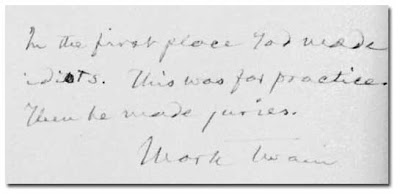 In the first place God made
idiots. This was for practice.
Then he made juries.
Mark Twain